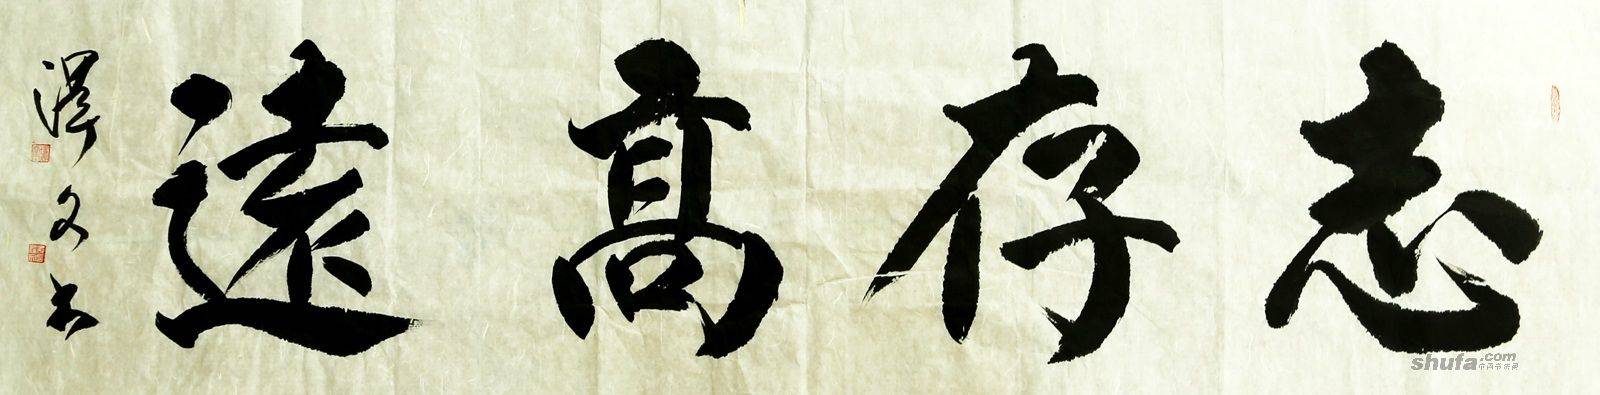 志存高遠
澤文书
shufa.com
中国书法网